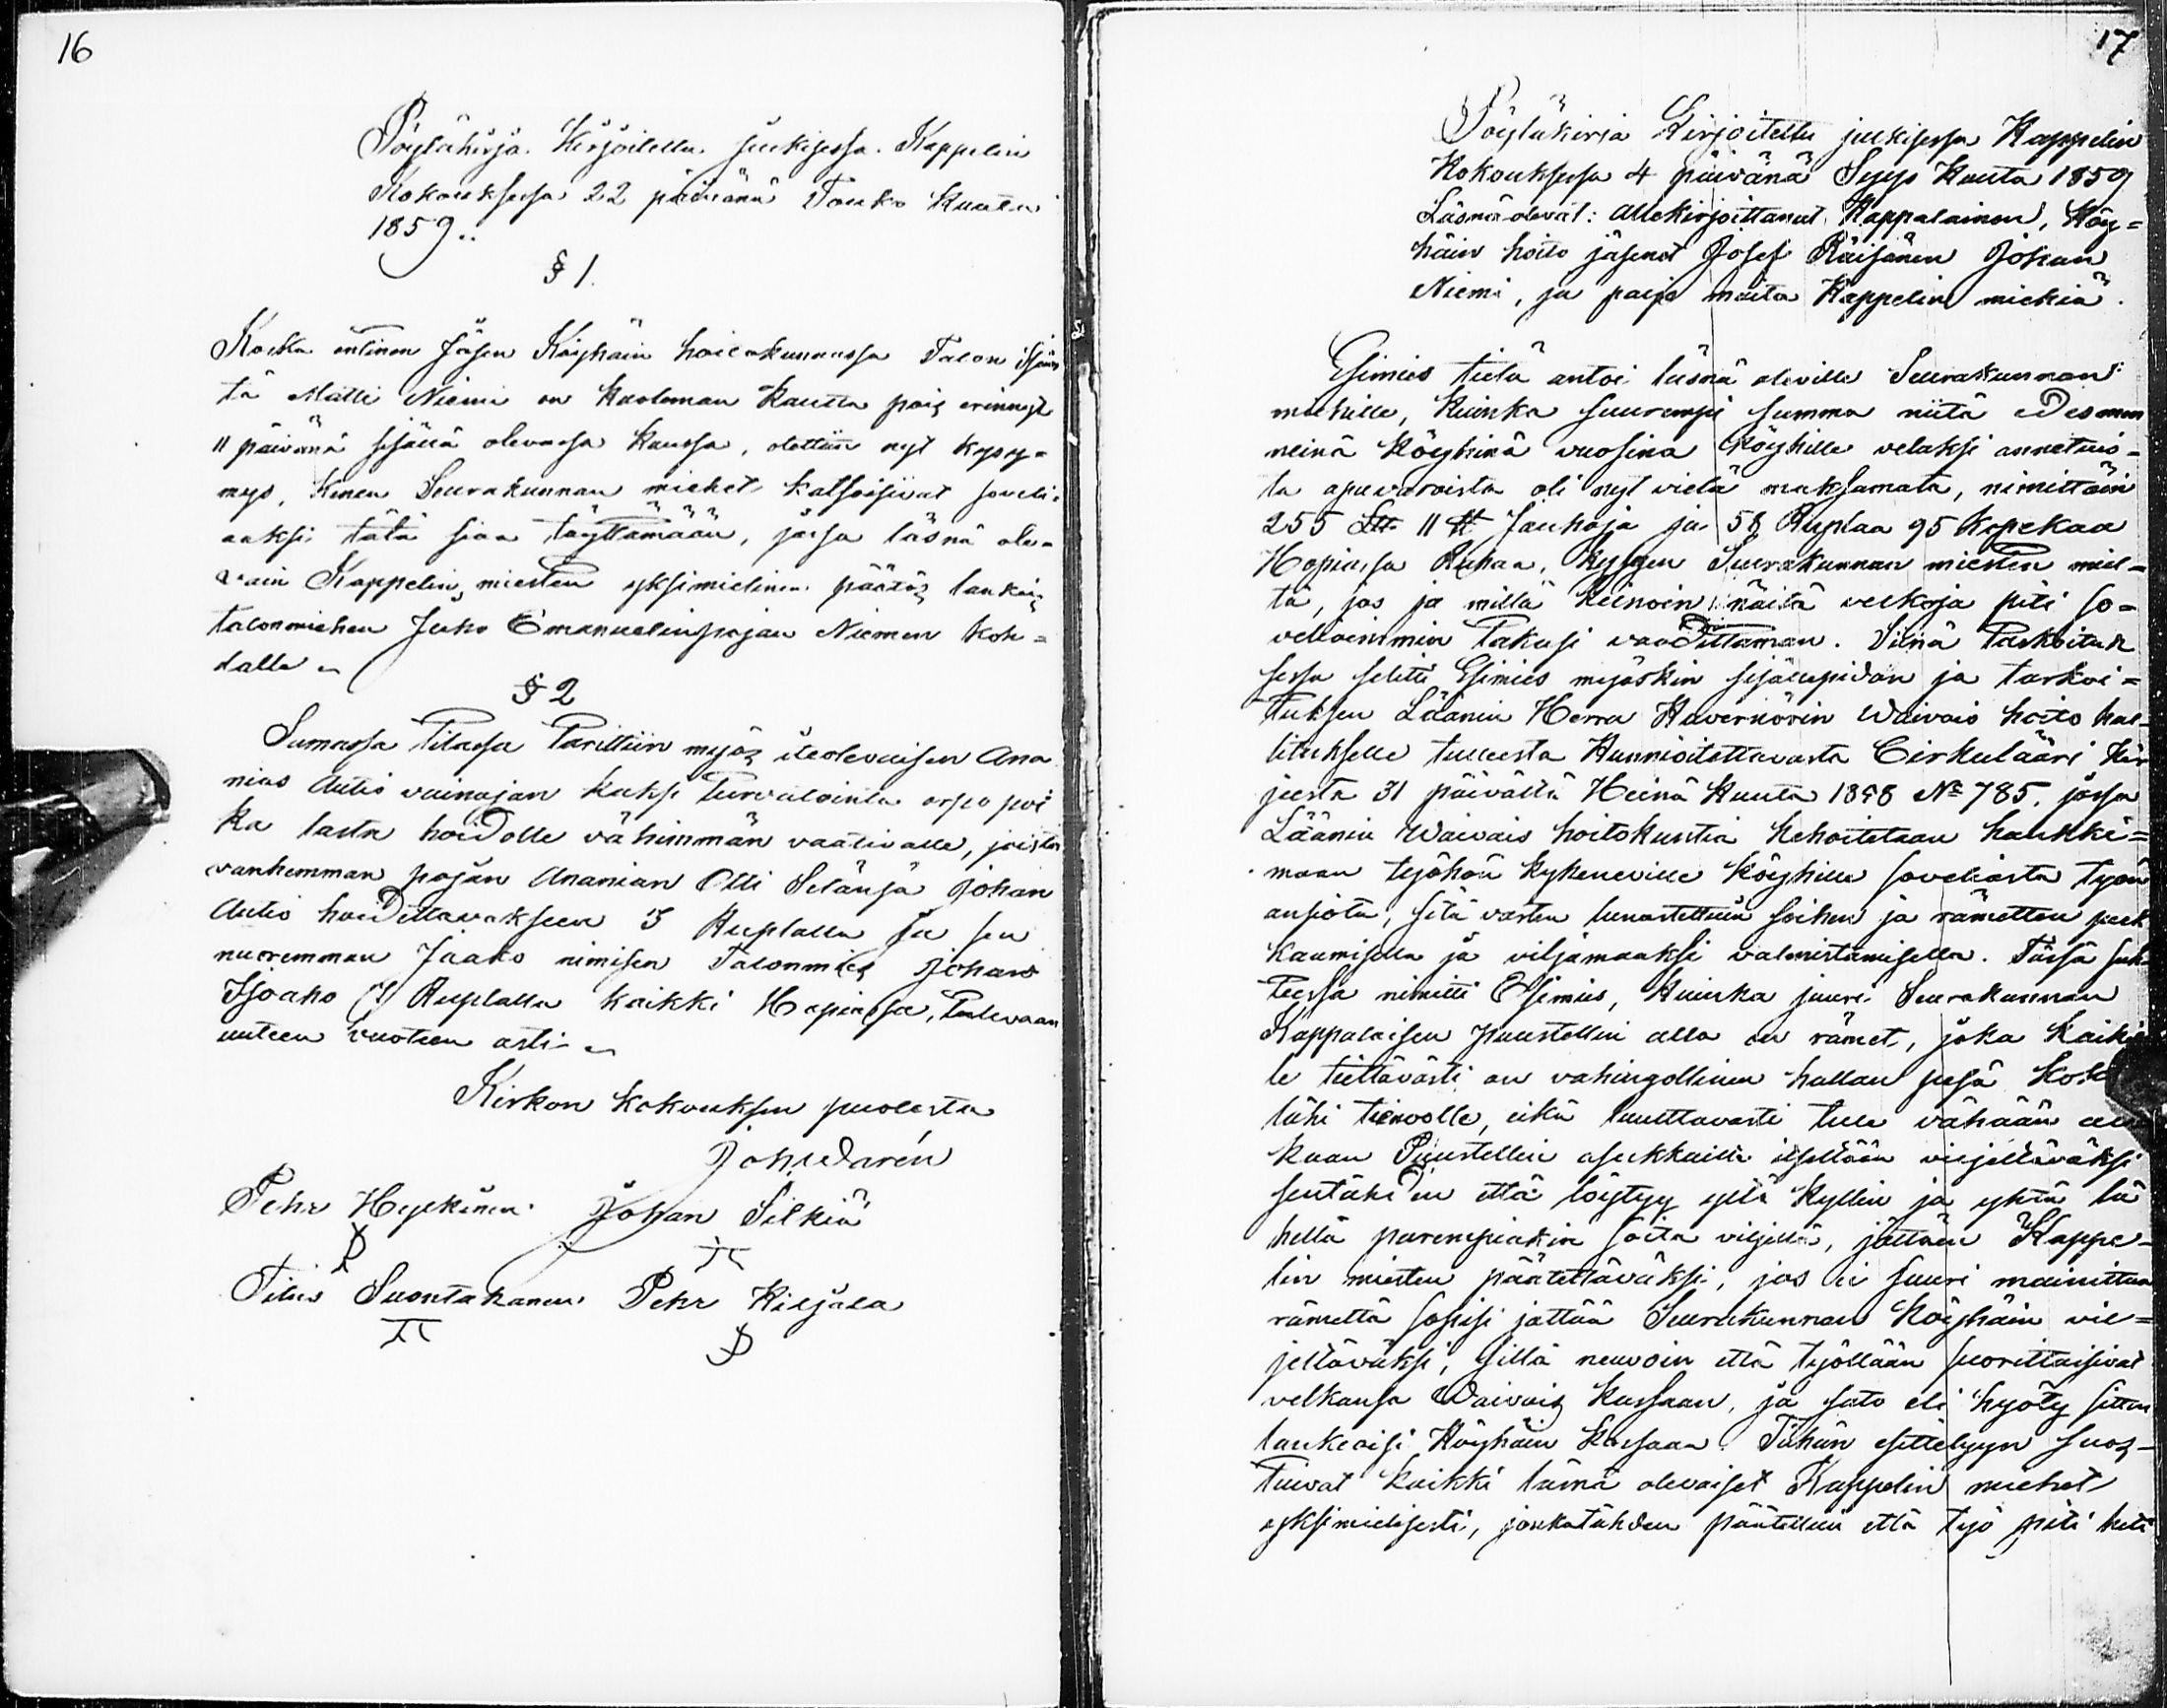 16
Pöytäkirja Kirjoitettu julkisessa Kappelin
Kokouksessa 22 päivänä Touko Kuuta
1859.
§ 1.
Koska entinen Jäsen Köyhäin hoitokunnassa Talon isän
tä Matti Niemi on Kuoleman Kautta pois erinnyt
11 päivänä sisällä olevassa Kuussa, otettiin nyt kysy=
mys, Kenen Seurakunnan miehet katsoisivat soveli=
aaksi tätä siaa täyttämään, jossa läsnä ole=
vain Kappelin miesten yksimielinen päätös lankeis
talonmiehen Juho Emanuelinpojan Niemen koh=
dalle
§ 2
Samassa Tilassa Tarittiin myös itseolevaisen Ana
nias Autio vainajan kaksi turvatointa orpo poi
ka lasta hoidolle vähimmän vaativalle, joista
vanhemman pojan Ananian Otti Setänsä Johan
Autio hoidettavakseen 3 Ruplalla ja sen
nuoremman Jaako nimisen Talonmies Johan
Isoaho 7 Ruplalla kaikki Hopiassa, Tulevaan
uuteen vuoteen asti
Kirkon kokouksen puolesta
Joh: Warén
Pehr Hyckönen Johan Silkiä
Titus Suontakanen Pehr Kiljala
17
Pöytäkirja Kirjoitettu julkisessa Kappelin
Kokouksessa 4 päivänä Syys Kuuta 1859
Läsnä olevat: Allekirjoittanut Kappalainen, Köy=
häin hoito jäsenet Josef Räisänen Johan
Niemi, ja paitsi muita Kappelin miehiä.
Esimies tietä antoi läsnä oleville Seurakunnan
miehille, Kuinka suurempi summa niitä edesmen
neinä Köyhinä vuosina Köyhille velaksi annetuis=
ta apuvaroista oli nyt vielä maksamata, nimittäin
255 L℔ 11 ℔ Jauhoja ja 58 Ruplaa 95 Kopekaa
Hopiassa Rahaa, kysyen Seurakunnan miesten miel=
tä, jos ja millä keinoin näitä velkoja piti so=
veliaimmin Takasi vaadittaman. Siinä Tarkoituk
sessa selitti Esimies myöskin sisällepidon ja tarkoi=
tuksen Läänin Herra Kuvernörin Waivais hoito hal=
litukselle tulleesta Kunnioitettavasta Cirkulääri kir
jeestä 31 päivältä Heinä Kuuta 1858 No 785, jossa
Läänin Waivais hoitokuntia kehoitetaan hankki=
maan työhön kykeneville Köyhille soveliasta työn
ansiota, sitä varten lunastettuin soihen ja rämetten perk
kaamisella ja viljamaaksi valmistamisella. Tässä suh
teessa nimitti Esimies, Kuinka juuri Seurakunnan
Kappalaisen puustellin alla on rämet, joka Kaikil
le tiettävästi on vahingollinen hallan pesä koko
lähi tienoolle, eikä luultavasti tule vähään ai
kaan Puustellin asukkailta itseltään viljeltäväksi
sentähden että löytyy yltä Kyllin ja yhtä lä
hellä parempiakin soita viljellä, jättäen Kappe=
lin miesten päätettäväksi, jos ei juuri mainittua
rämettä sopisi jättää Seurakunnan Köyhäin vil=
jeltäväksi, sillä neuvoin että työllään suorittaisivat
velkansa Waivais kassaan, ja sato eli hyöty sitten
lankeaisi Köyhäin Kassaan. Tähän esittelyyn suos=
tuivat kaikki läsnä olevaiset Kappelin miehet
yksimielisesti, jonkatähden päätettiin että työ piti heti